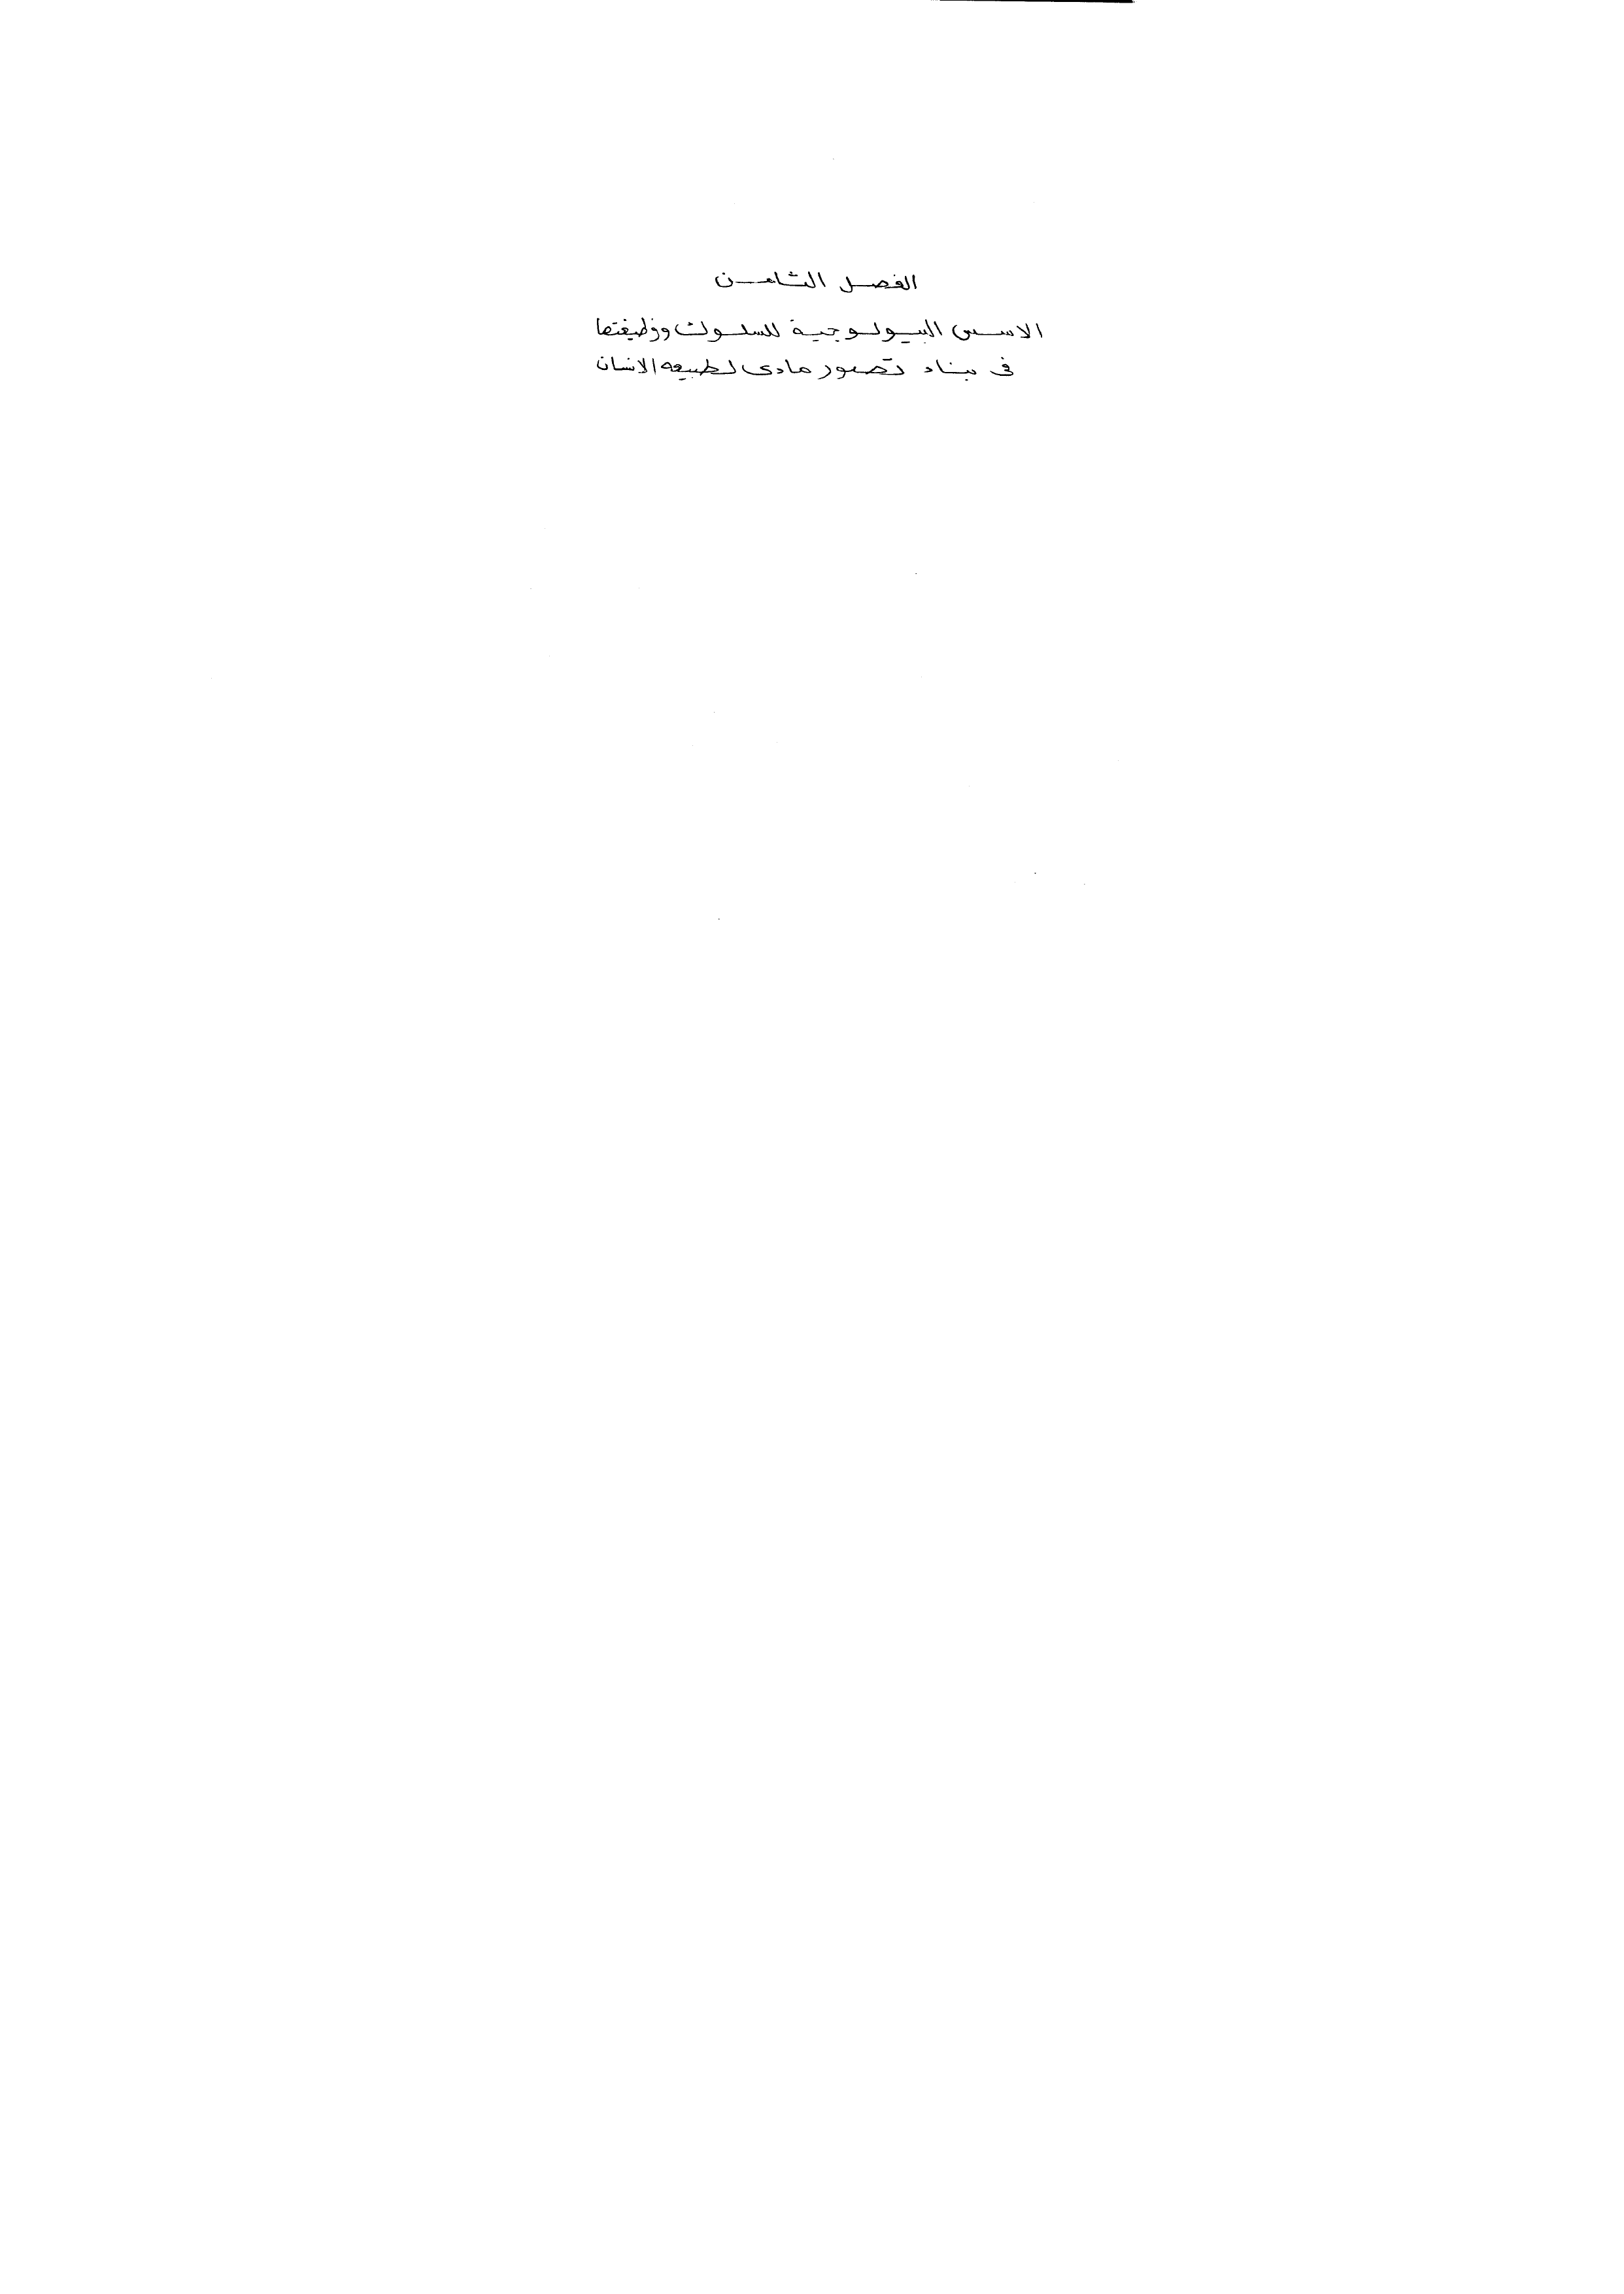 الفصل الثامن
الاسس البيولوجية للسلوك ووظيفتها
فى بناء تصور مادى لطبيعه الانسان